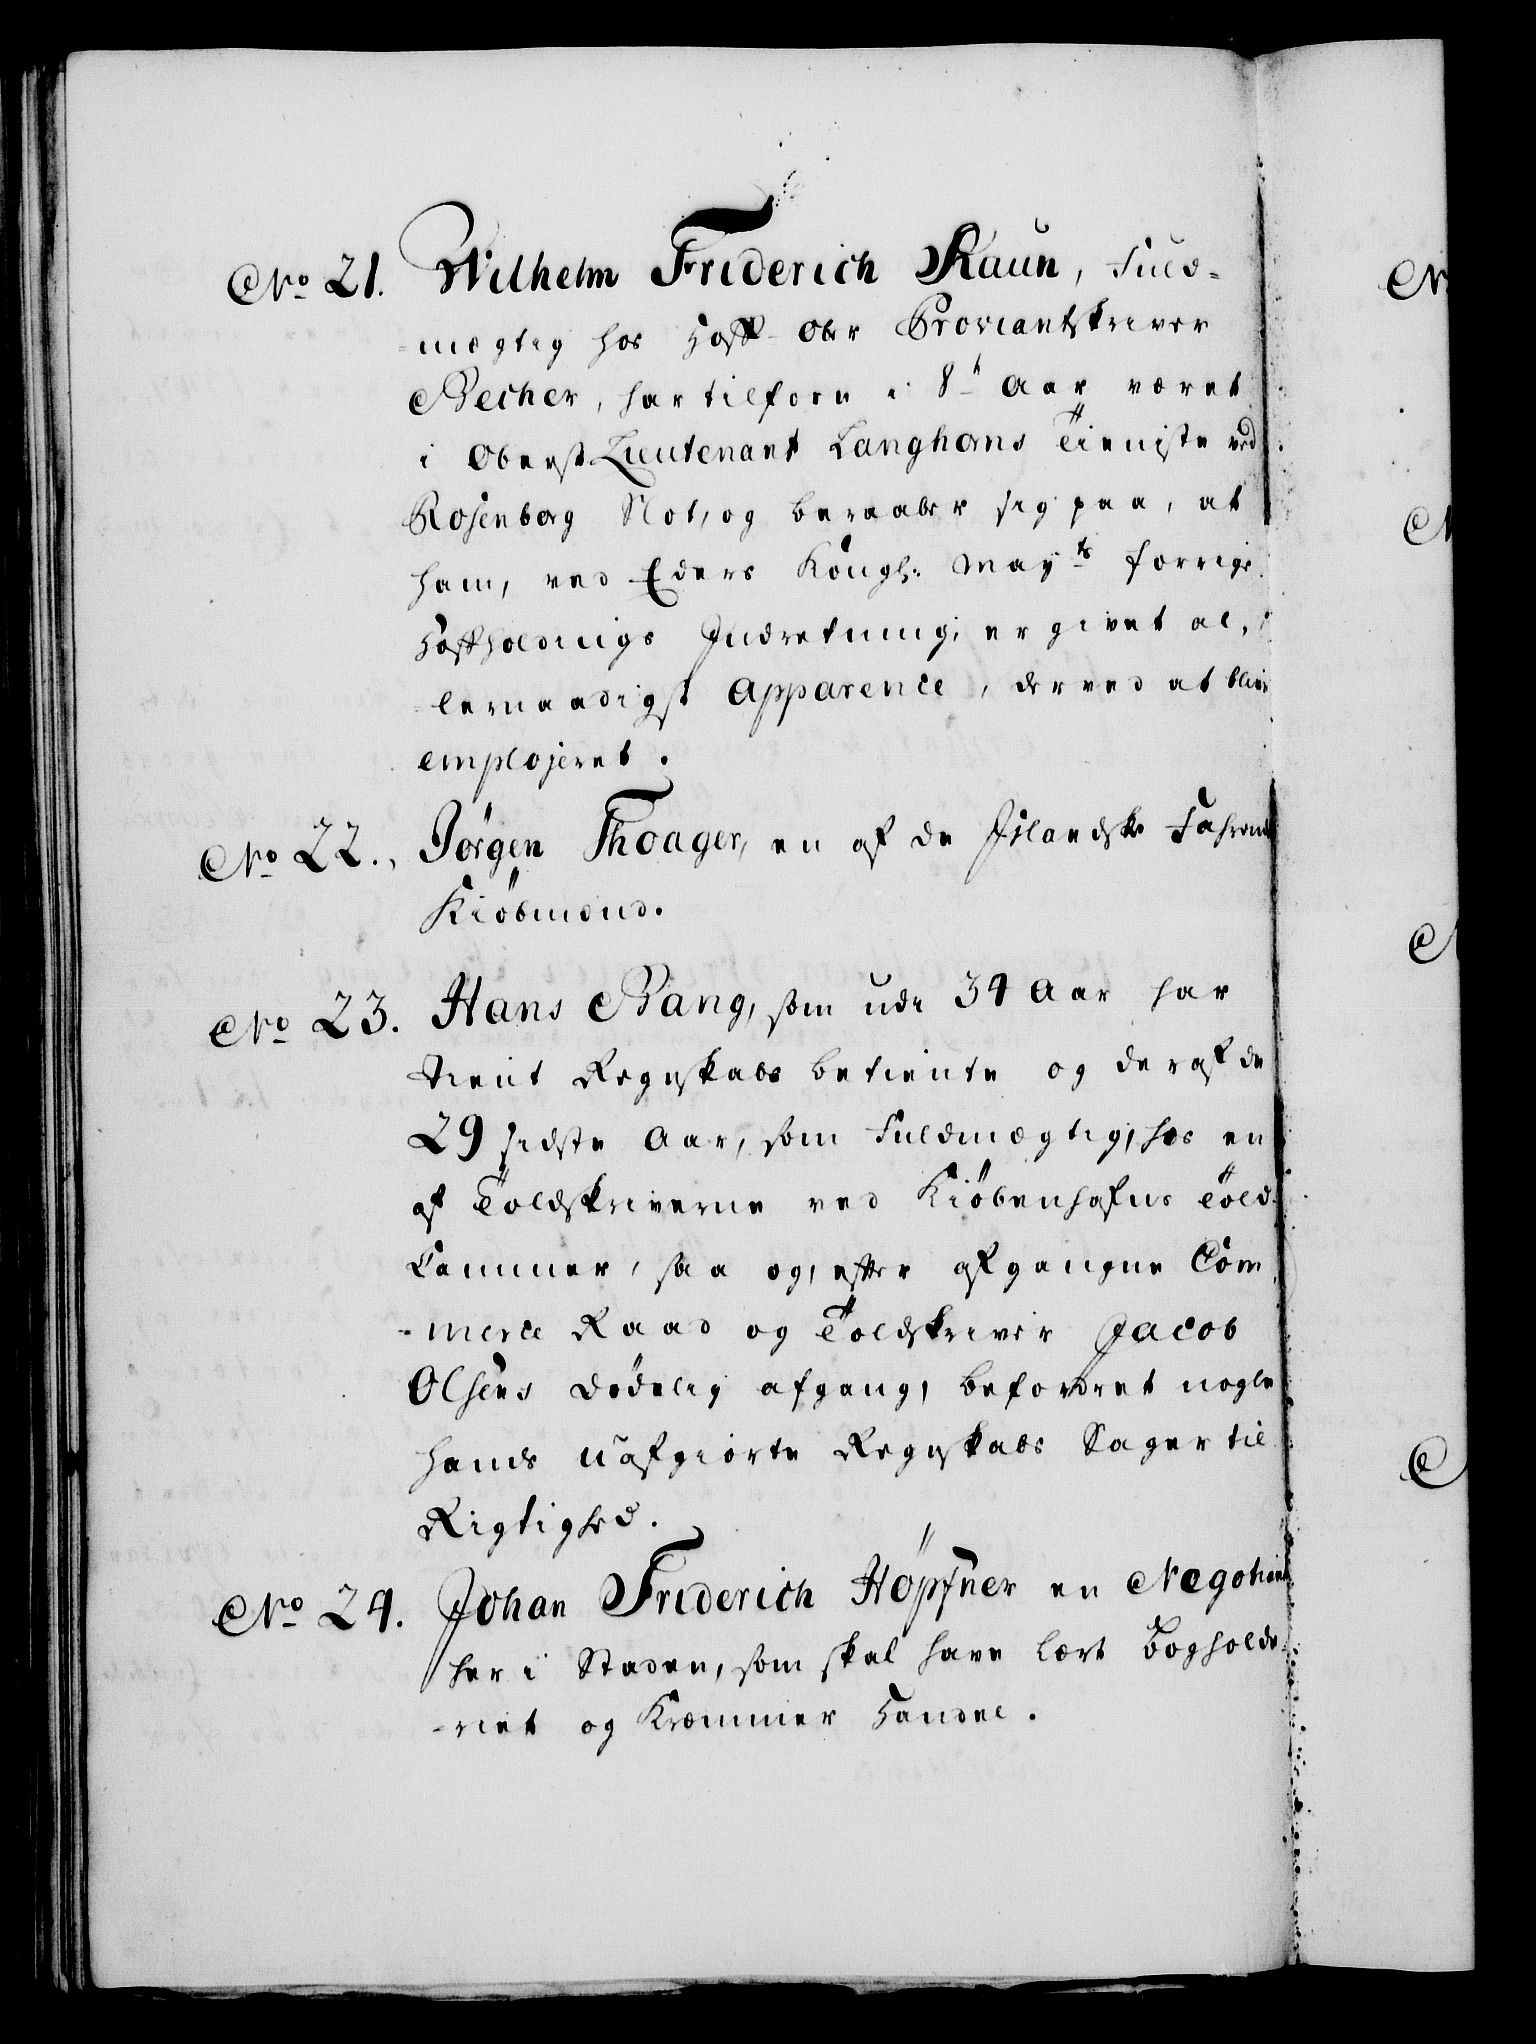 No 21. Wilhelm Friderich Raun, Fuld-
-mægtig hos Hoff-Ober Proviantskriver
Becher, har tilforn i 8te Aar været
i Oberst Lieutenant Langhorns Tieniste ved
Rosenborg Slot, og beraaber sig paa, at
ham, ved Eders Kongl: Mayts forrige
Hoffholdnings Indretning, er givet al,
-lernaadigst Apparence, derved at blive
emplojeret.
No 22., Jørgen Thoager, en af de Islandske Fahrende
Kiøbmænd.
No 23. Hans Bang, som udi 34 Aar har
tient Regnskabs betiente og deraf de
29 sidste Aar, som Fuldmægtig, hos en
af Toldskriverne ved Kiøbenhafns Told-
Cammer, saa og, efter afgangne Com,
-merce Raad og Toldskriver Jacob
Olsens dødelig afgang, befordret nogle
hands uafgiorte Regnskabs Sager til
Rigtighed.
No 24. Johan Friderich Höpfner en Negotiant
her i Staden, som skal have lært Bogholde-
-riet og Kræmmer Handel.